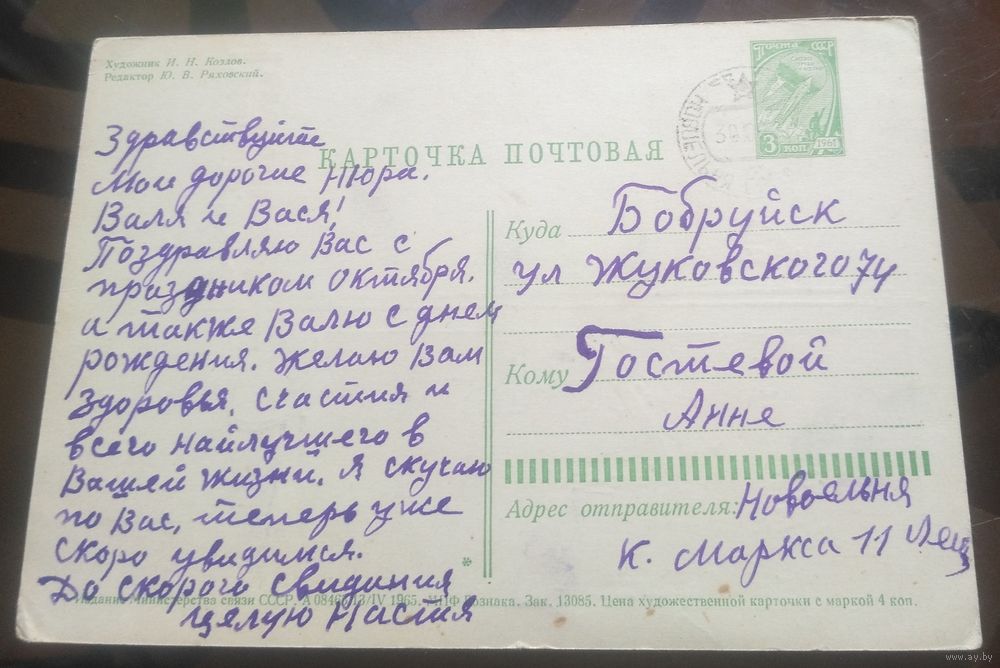 Художник И. Н. Козлов.
Редактор Ю. В. Ряховский.
Почта СССР
3 коп.
1961
КАРТОЧКА ПОЧТОВАЯ
Здравствуйте
Мои дорогие Нюра.
Валя и Вася!
Поздравляю Вас с
праздником октября.
а также Валю с днем
рождения. Желаю Вам
здоровья, счастия и
всего найлучшего в
Вашей жизни. Я скучаю
по Вас, теперь уже
скоро увидимся.
До скорого свидания
целую Настя
Куда Бобруйск
ул Жуковского 74
Кому Гостевой
Анне
Адрес отправителя: Новоельня
К. Маркса 11
*
Издание Министерства связи СССР. А 1965. Зак. 13085. Цена художественной карточки с маркой 4 коп.
www.ay.by